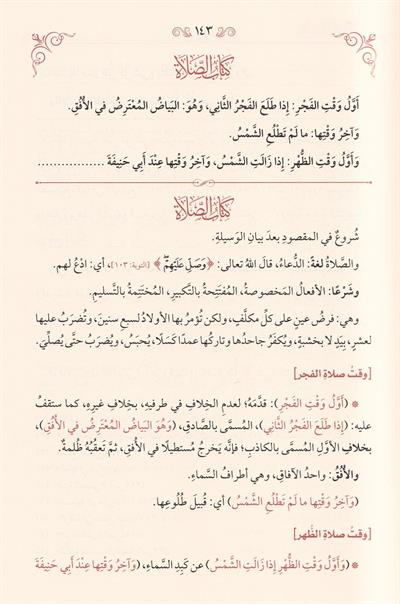 ١٤٣
كتاب الصلاة
أَوَّلُ وَقْتِ الفَجْرِ: إِذَا طَلَعَ الفَجْرُ الثَّانِي، وَهُوَ: البَيَاضُ المُعْتَرِضُ في الأُفُقِ.
وَآخِرُ وَقْتِهَا: ما لَمْ تَطْلُعِ الشَّمْسُ.
وَأَوَّلُ وَقْتِ الظُّهْرِ: إِذَا زَالَتِ الشَّمْسُ، وَآخِرُ وَقْتِهَا عِنْدَ أَبِي حَنِيفَةَ .................
كتاب الصلاة
شُروعٌ في المقصودِ بعدَ بيانِ الوسيلةِ.
والصَّلاةُ لغةً: الدُّعاءُ، قالَ اللهُ تعالى: ﴿وَصَلِّ عَلَيْهِمْ﴾ [التوبة: ١٠٣]، أي: ادْعُ لهم.
وشَرْعًا: الأفعالُ المَخصوصةُ، المُفتَتِحةُ بالتَّكبيرِ، المُختَتِمةُ بالتَّسليمِ.
وهي: فرضُ عينٍ على كلِّ مكلَّفٍ، ولكن تُؤمَرُ بها الأولادُ لسبعِ سنينَ، وتُضرَبُ عليها
لعشرٍ بِيَدٍ لا بخشبةٍ، ويُكفَرُ جاحدُها وتاركُها عمدًا كَسَلًا، يُحبَسُ، ويُضرَبُ حتَّى يُصلِّيَ.
[وقتُ صلاةِ الفجرِ]
* (أَوَّلُ وَقْتِ الفَجْرِ): قدَّمَهُ؛ لعدمِ الخِلافِ في طرفيهِ، بخلافِ غيرِهِ، كما ستقفُ
عليه: (إِذَا طَلَعَ الفَجْرُ الثَّانِي)، المسمَّى بالصَّادقِ، (وَهُوَ البَيَاضُ المُعْتَرِضُ في الأُفُقِ)،
بخلافِ الأوَّلِ المُسمَّى بالكاذبِ؛ فإنَّهُ يَخرجُ مُستطيلًا في الأُفقِ، ثمَّ تَعقُبُهُ ظُلمةٌ.
والأُفُقُ: واحدُ الآفاقِ، وهي أطرافُ السَّماءِ.
(وَآخِرُ وَقْتِهَا ما لَمْ تَطْلُعِ الشَّمْسُ) أي: قُبيلَ طُلُوعِها.
[وقتُ صلاةِ الظُّهرِ]
* (وَأَوَّلُ وَقْتِ الظُّهْرِ إِذَا زَالَتِ الشَّمْسُ) عن كبدِ السَّماءِ، (وَآخِرُ وَقْتِهَا عِنْدَ أَبِي حَنِيفَةَ